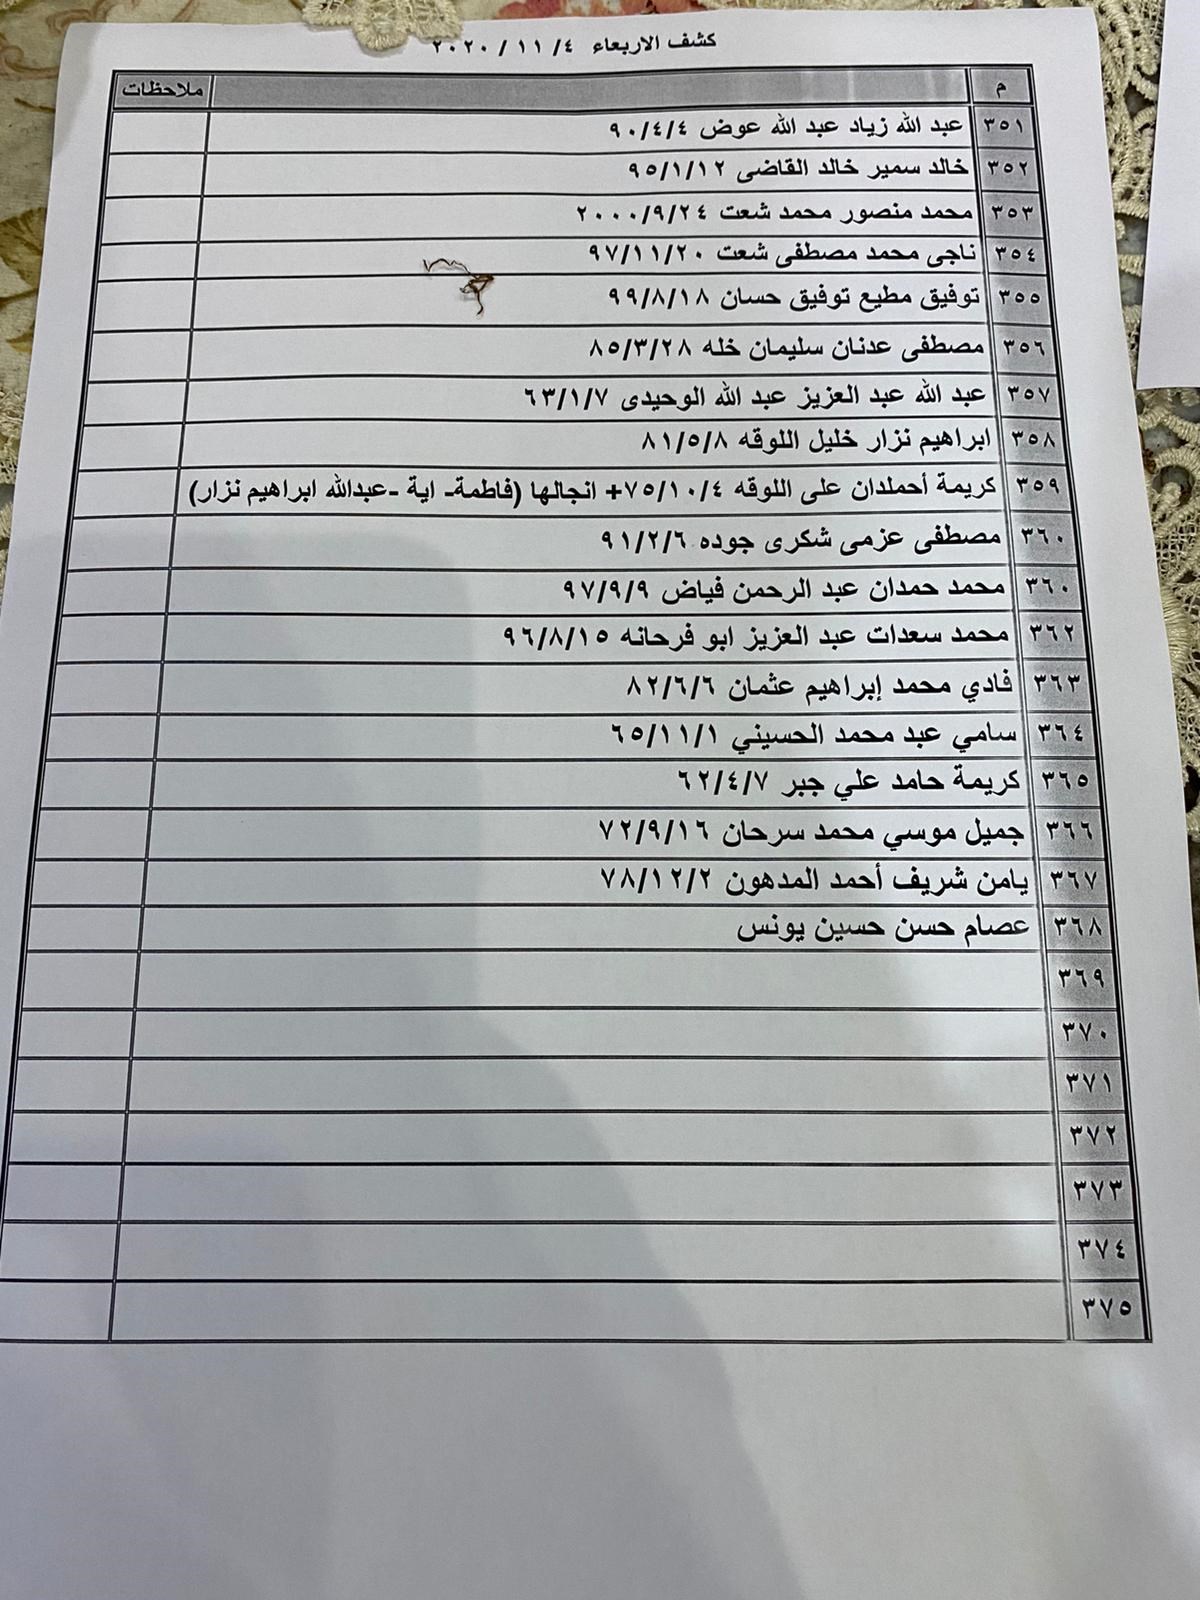 كشف الاربعاء ٤/ ١١ / ٢٠٢٠
م ملاحظات
٣٥١ عبد الله زياد عبد الله عوض ٩٠/٤/٤
٣٥٢ خالد سمير خالد القاضى ٩٥/١/١٢
٣٥٣ محمد منصور محمد شعت ٢٠٠٠/٩/٢٤
٣٥٤ ناجى محمد مصطفى شعت ٩٧/١١/٢٠
٣٥٥ توفيق مطيع توفيق حسان ٩٩/٨/١٨
٣٥٦ مصطفى عدنان سليمان خله ٨٥/٣/٢٨
٣٥٧ عبد الله عبد العزيز عبد الله الوحيدى ٦٣/١/٧
٣٥٨ ابراهيم نزار خليل اللوقه ٨١/٥/٨
٣٥٩ كريمة أحملدان على اللوقه ٧٥/١٠/٤+ انجالها (فاطمة- اية -عبدالله ابراهيم نزار)
٣٦٠ مصطفى عزمى شكرى جوده ٩١/٢/٦
٣٦٠ محمد حمدان عبد الرحمن فياض ٩٧/٩/٩
٣٦٢ محمد سعدات عبد العزيز ابو فرحانه ٩٦/٨/١٥
٣٦٣ فادي محمد إبراهيم عثمان ٨٢/٦/٦
٣٦٤ سامي عبد محمد الحسيني ٦٥/١١/١
٣٦٥ كريمة حامد علي جبر ٦٢/٤/٧
٣٦٦ جميل موسي محمد سرحان ٧٢/٩/١٦
٣٦٧ يامن شريف أحمد المدهون ٧٨/١٢/٢
٣٦٨ عصام حسن حسين يونس
٣٦٩
٣٧٠
٣٧١
٣٧٢
٣٧٣
٣٧٤
٣٧٥